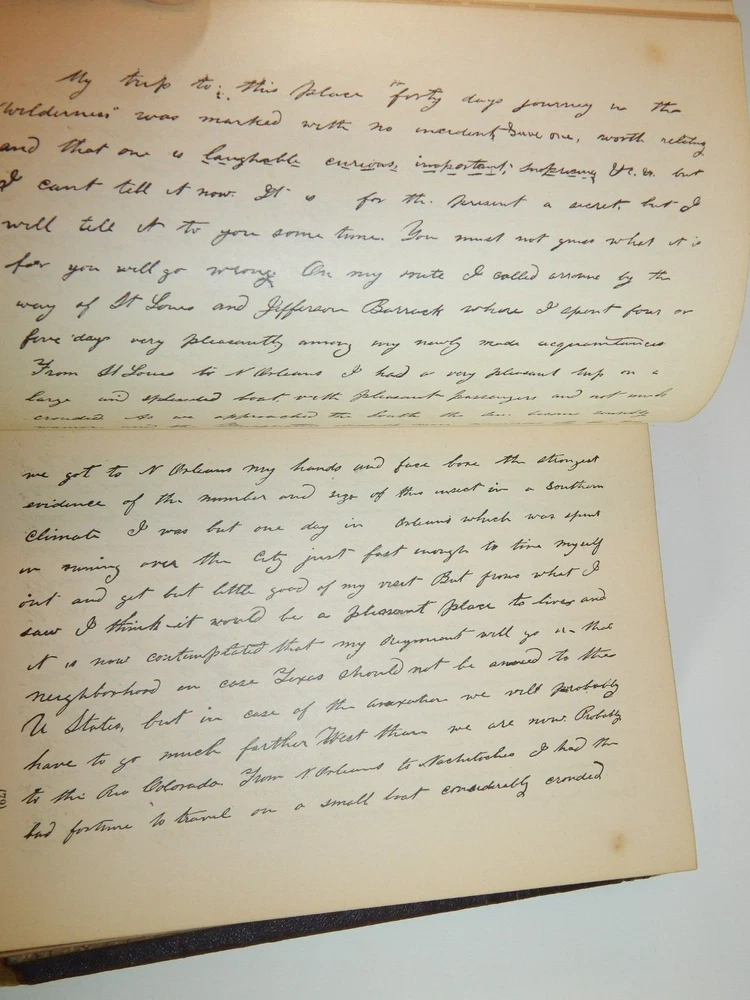 My trip to this place "forty days journey in the
Wilderness" was marked with no incident, Save one, worth relating
and that one is laughable curious, important, surprising &c. &c. but
I cant tell it now. It is for the present a secret, but I
will tell it to you some time. You must not guess what it is
for you will go wrong. On my route I called arround by the
way of St Louis and Jefferson Barrack where I spent four or
five days very pleasantly among my newly made acquaintances
From St Louis to N Orleans I had a very pleasant trip on a
large and splendid boat with pleasant passengers and not much
crouded. As we approached the South the sun became
we got to N Orleans my hands and face bore the strongest
evidence of the number and size of this insect in a Southern
climate I was but one day in Orleans which was spent
in runing over the City just fast enough to tire myself
out and get but little good of my visit But from what I
saw I think it would be a pleasant place to live and
it is now contemplated that my Regiment will go in that
neighborhood in case Texas should not be anexed to the
U States, but in case of the anexation we will probably
have to go much farther West than we are now. Probably
to the Rio Colorado. From N Orleans to Nachitoches I had the
bad fortune to travel on a small boat considerably crouded
(79)